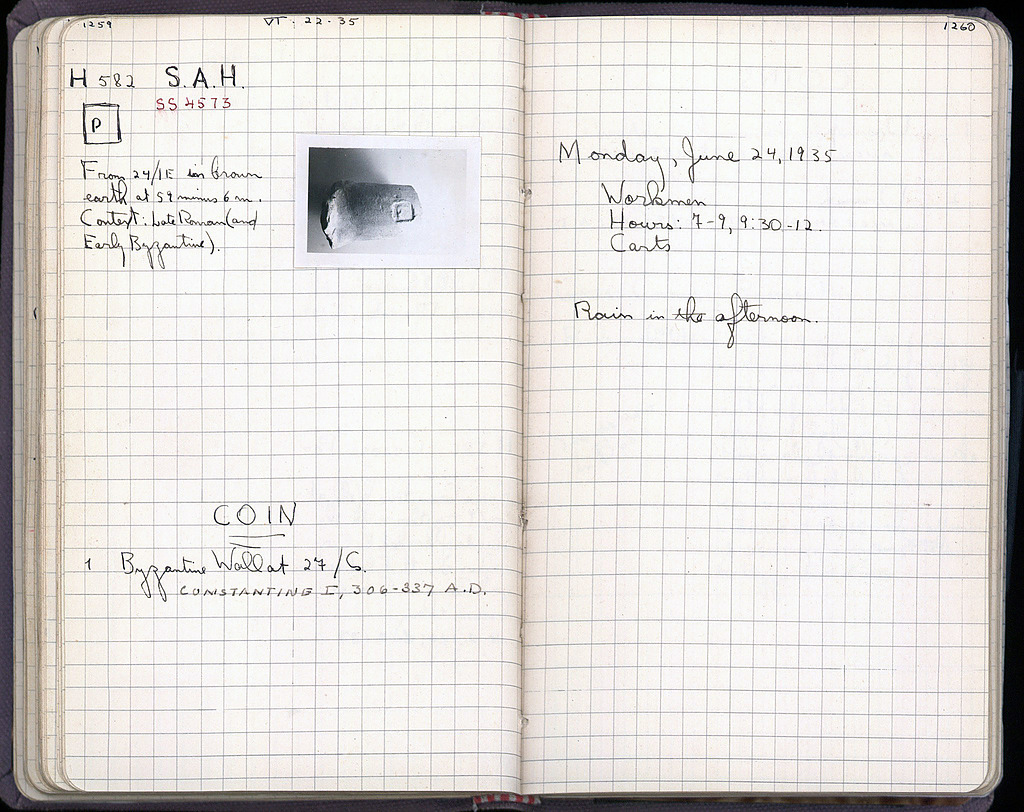 1259
VI: 22-35
H 582 S.A.H.
SS 4573
P
From 24/IE in brown
earth at 59 minus 6 m.
Context: Late Roman (and
Early Byzantine).
COIN
1 Byzantine Wall at 27/S.
CONSTANTINE I, 306-337 A.D.
1260
Monday, June 24, 1935
Workmen
Hours: 7-9, 9:30-12.
Carts
Rain in the afternoon.